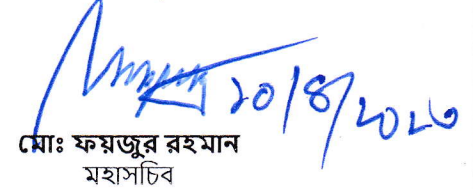 ২০/৪/২০২৩
মোঃ ফয়জুর রহমান
মহাসচিব